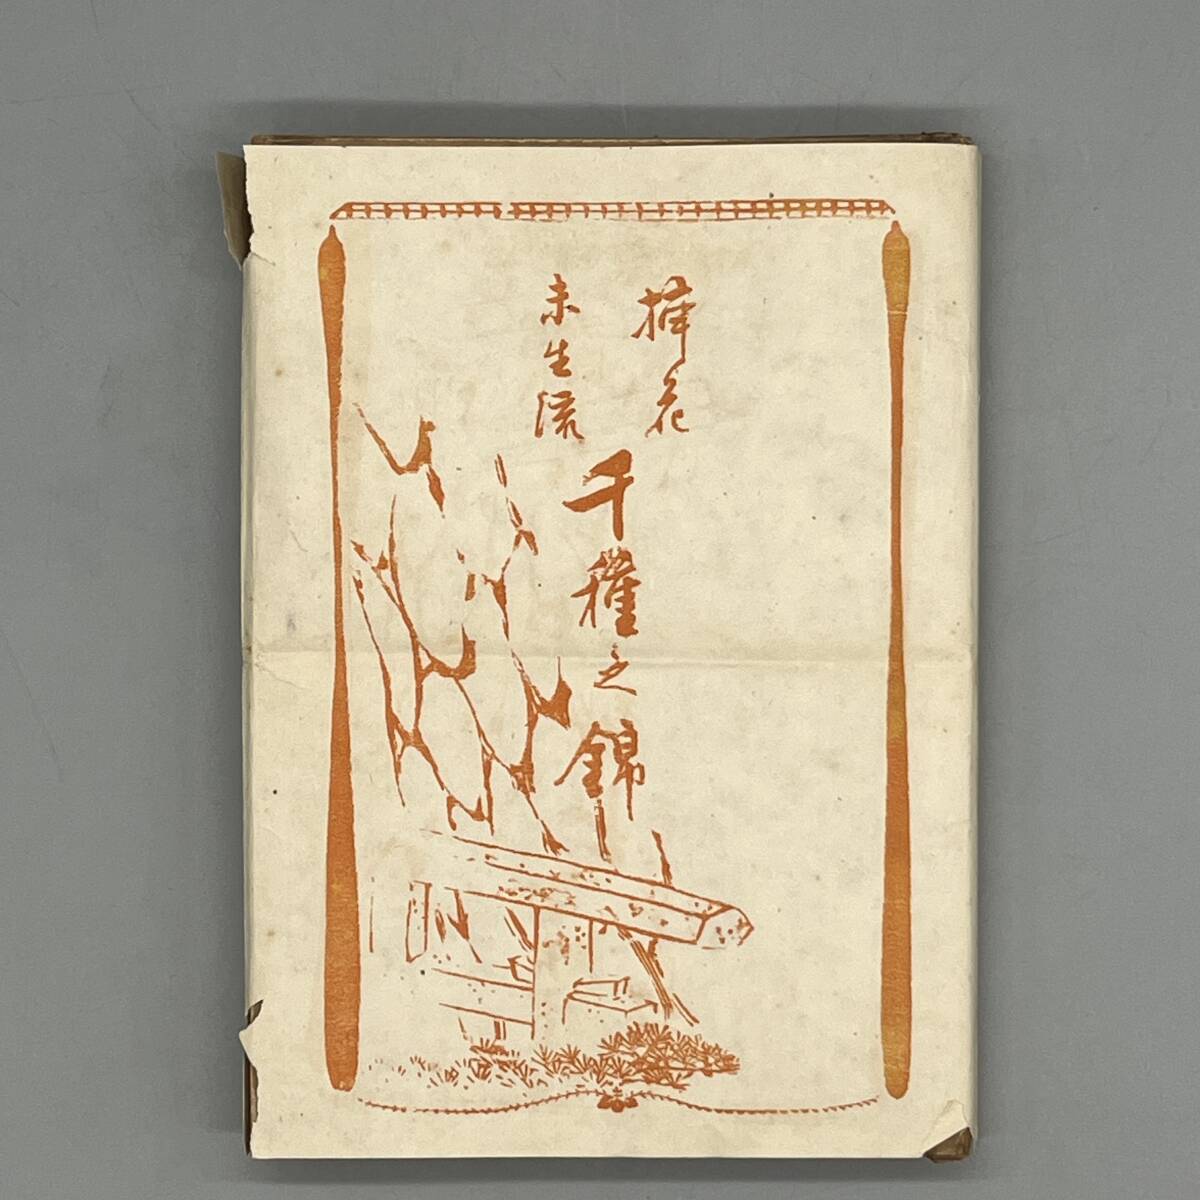 挿花
未生流
千種之錦